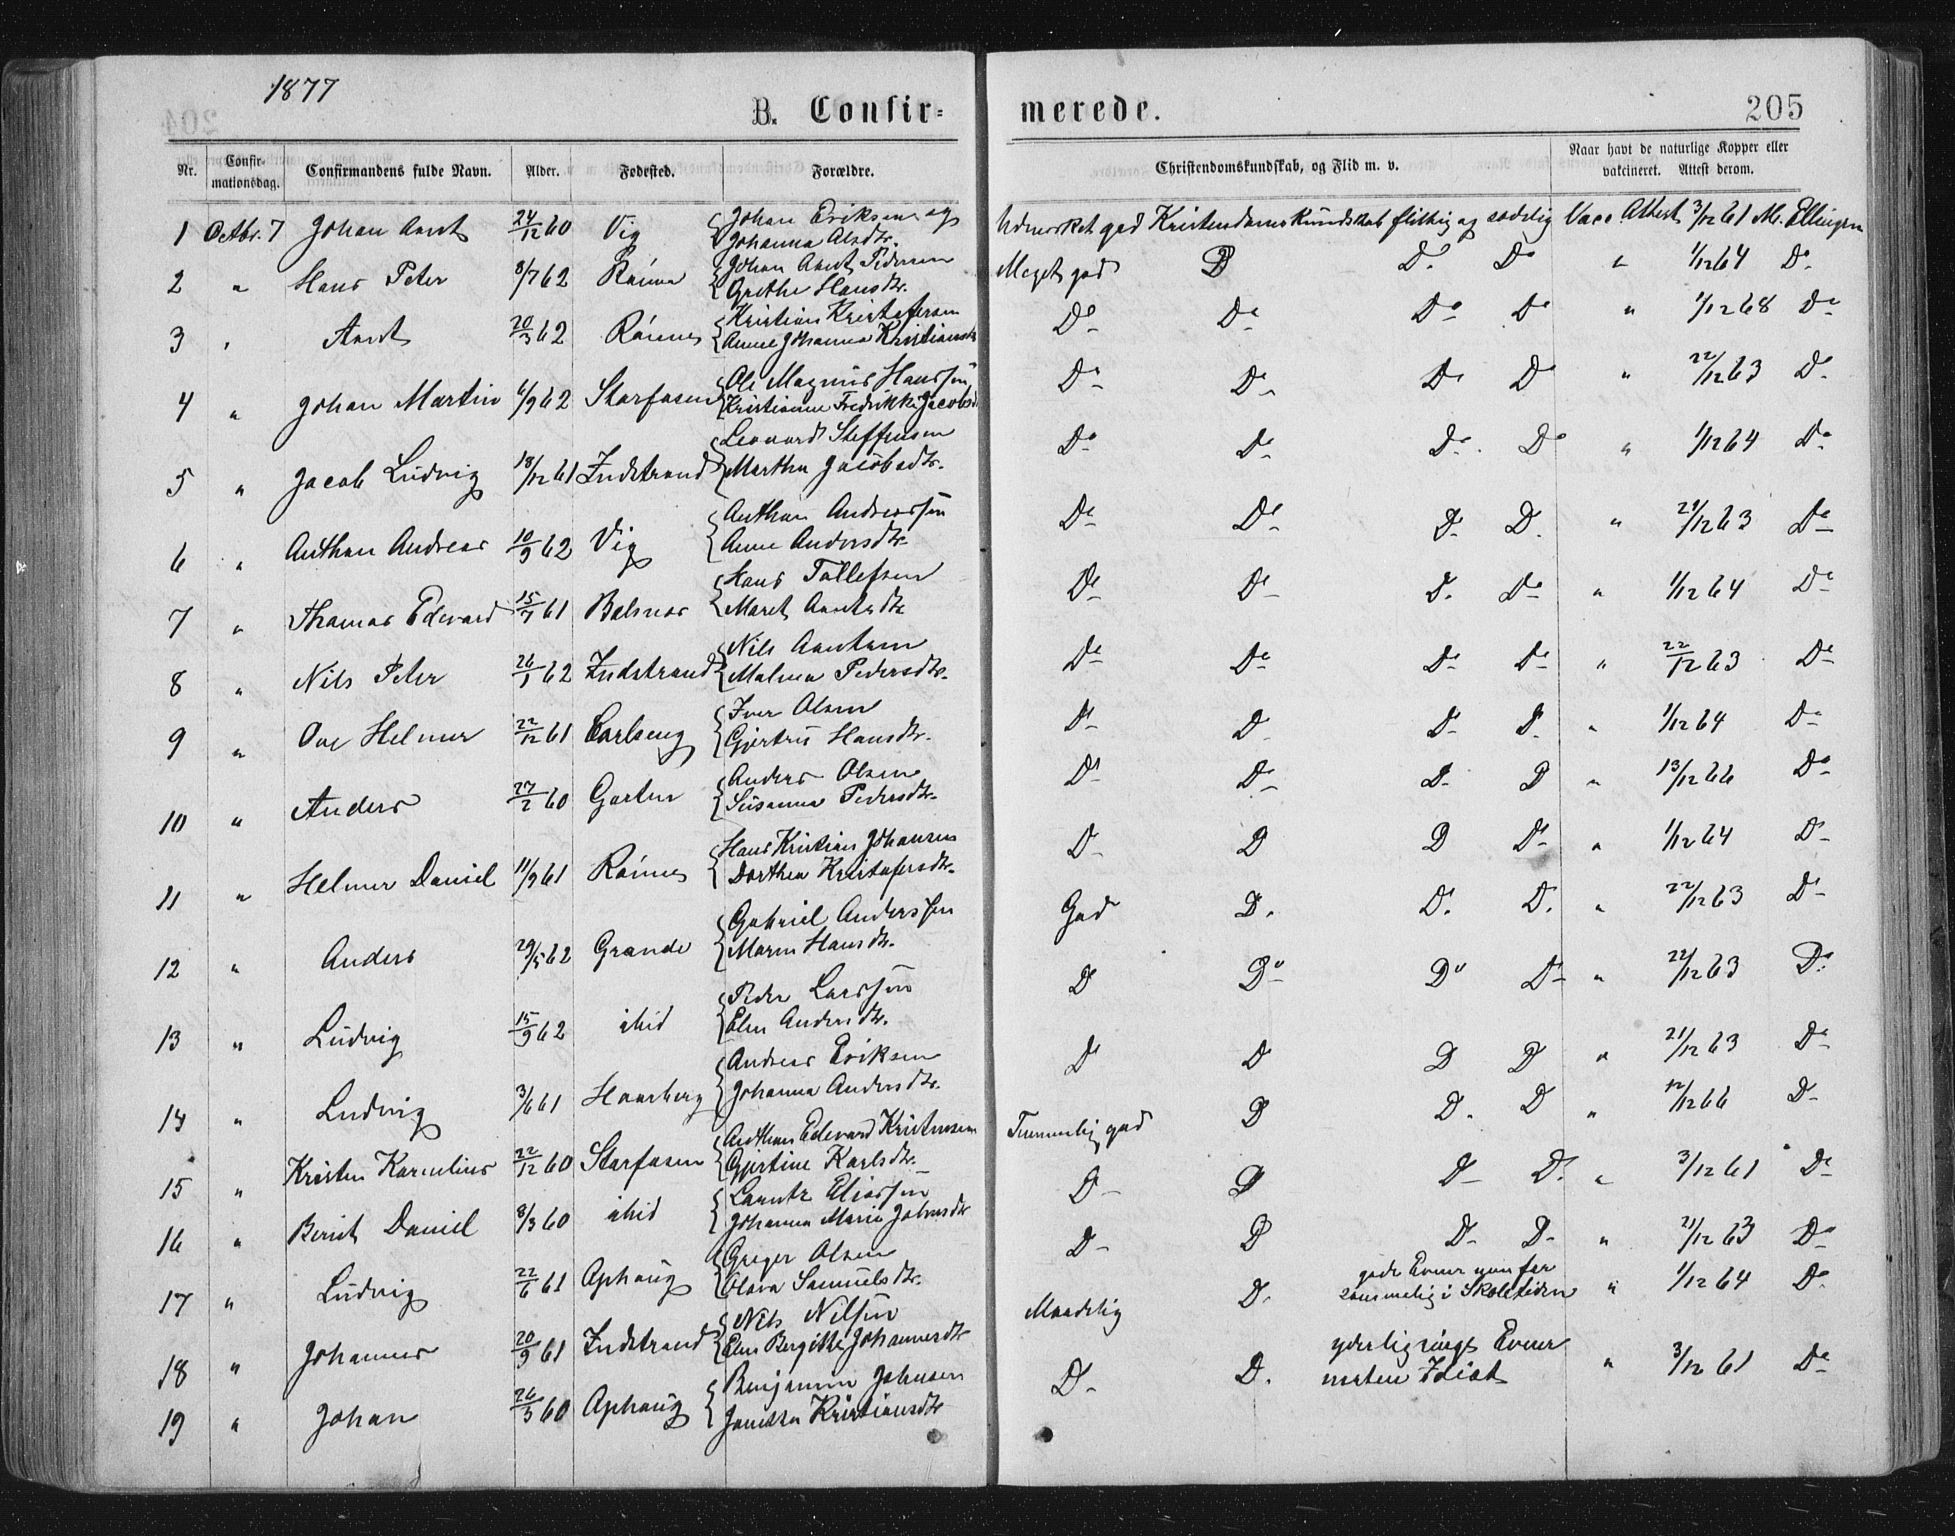 1877
B. Confir=
merede.
205
Nr.
Confir-
mationsdag.
Confirmandens fulde Navn.
Alder.
Fødested.
Forældre.
Christendomskundskab, og Flid m. v.
Naar havt de naturlige Kopper eller
vakcineret. Attest derom.
1 Octbr. 7 Johan Arnt 24/12 60 Vig Johan Eriksen og
Johanna Olsdtr.
Udmærket god Kristendomskundskab flittig og sædelig Vacc Attest 3/12 61 M. Ellingsen
2 " Hans Peter 8/7 62 Johan Arnt Pedersen
Grethe Hansdtr.
Meget god D D. Do " 1/12 64 Do
3 " Arnt 20/3 62 Rønnes Kristian Kristofersen
Anne Johanna Kristiansdtr
Do Do Do Do " 1/12 68 Do
4 " Johan Martin 6/9 62 Storfosen Ole Magnus Hanssøn
Kristianne Fredrikke Jacobsd
Do Do Do D " 22/12 63 Do
5 " Jacob Ludvig 18/12 61 Indstrand Leonard Steffensen
Martha Jacobsdtr.
Do Do Do Do " 1/12 64 Do
6 " Anthon Andreas 10/9 62 Vig Anthon Andreassøn
Anne Andersdtr.
Do Do D D. " 21/12 63 Do
7 " Thomas Edevard 15/7 61 Hans Tollefsen
Maret Arntsdtr
Do Do D. Do " 1/12 64 Do
8 " Nils Peter 26/1 62 Indstrand Nils Arntsen
Malena Pedersdtr.
Do Do Do Do " 22/12 63 Do
9 " Ove Helmer 22/12 61 Carlseng Iver Olsen
Gjertru Hansdtr.
Do D D D " 1/12 64 Do
10 " Anders 27/2 60 Garten Anders Olsen
Susanna Pedersdtr.
Do Do D D " 13/12 66 Do
11 " Helmer Daniel 11/9 61 Rønnes Hans Kristian Johansen
Dorthea Kristofersdtr.
D D D Do " 1/12 64 Do
12 " Anders 29/5 62 Grande Gabriel Anderssøn
Maren Hansdtr.
God D. D. D. " 22/12 63 Do
13 " Ludvig 15/9 62 ibid Peder Larssøn
Elen Andersdtr.
D Do Do Do " 22/12 63 Do
14 " Ludvig 3/6 61 Haarberg Andreas Eriksen
Johanna Andersdtr.
D D D D " 21/12 63 Do
15 " Kristen Kornelius 22/12 60 Storfosen Anthon Edevard Kristensen
Gjertine Karlsdtr.
Temmelig god D D. D " 12/12 66 Do
16 " Berint Daniel 8/3 60 ibid Lorents Eliassøn
Johanna Maria
D D D D. " 3/12 61 Do
17 " Ludvig 22/6 61 Aphaug Greger Olsen
Olava Samuelsdtr.
D D D D " 21/12 63 Do
18 " Johannes 20/9 61 Indstrand Nils Nilsøn
Elen Bergitte Johannesdtr
Maadelig D. gode Evner men for
i Skoletiden " 1/12 64 Do
19 " Johan 26/3 60 Aphaug Benjamin Johnsen
Kristiansdtr
D D. yderlig ringe Evner
næsten Idiot " 3/12 61 Do